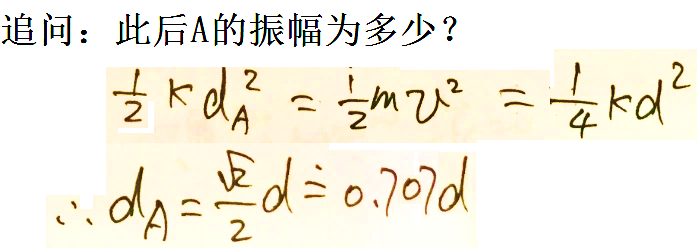 追问：此后A的振幅为多少？
½kd_A² = ½mv² = ¼kd²
∴ d_A = √2/2 d ≐ 0.707d